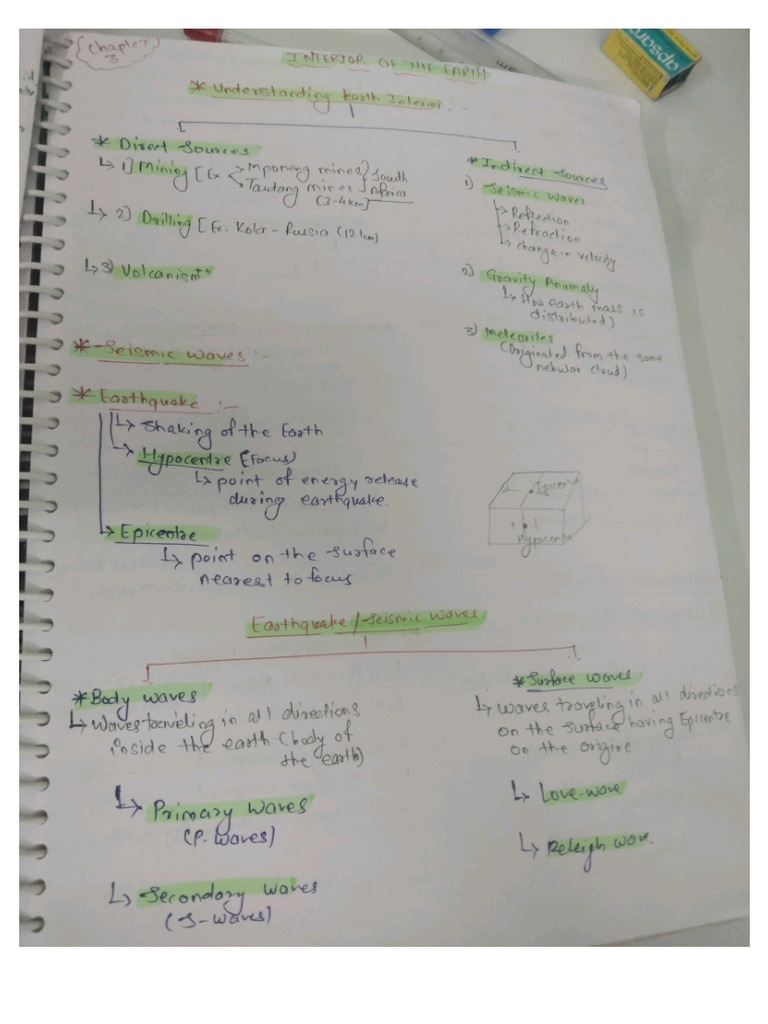 Chapter 3
INTERIOR OF THE EARTH
* Understanding Earth Interior :-
* Direct Sources
↳ 1) Mining [Ex. → Mponeng mines } South
→ Tautang mines } Africa
(3-4 km]
↳ 2) Drilling [Ex. Kola - Russia (12 km)
↳ 3) Volcanism
* Indirect Sources
1) Seismic Waves
↳ Reflection
↳ Retraction
↳ change in velocity
2) Gravity Anumaly
↳ How earth mass is
distributed)
3) Meteorites
(Originated from the same
nebular cloud)
* Seismic Waves :-
* Earthquake :-
↳ Shaking of the Earth
↳ Hypocentre (Focus)
↳ point of energy release
during earthquake.
→ Epicentre
↳ point on the surface
nearest to focus
Epicentre
Hypocentre
Earthquake / Seismic Waves
* Body waves
↳ Waves traveling in all directions
inside the earth (body of
the earth)
↳ Primary Waves
(P. Waves)
↳ Secondary Waves
(S-Waves)
* Surface waves
↳ waves traveling in all directions
on the surface having Epicentre
on the origine
↳ Love-wave
↳ Releigh wave.
apsara